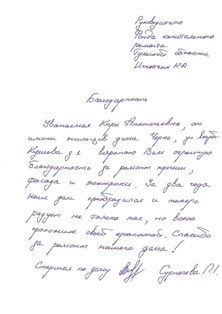 Руководителю
Фонда капитального
ремонта
Тульской области
К.А.
Благодарность
Уважаемая Кира Анатольевна, от
имени жильцов дома Чернь, ул.
д 1 выражаю Вам огромную
благодарность за ремонт крыши,
фасада и электрики. За два года
наш дом преобразился и теперь
радует не только нас, но всех
прохожих своей красотой. Спасибо
за ремонт нашего дома!
Старшая по дому